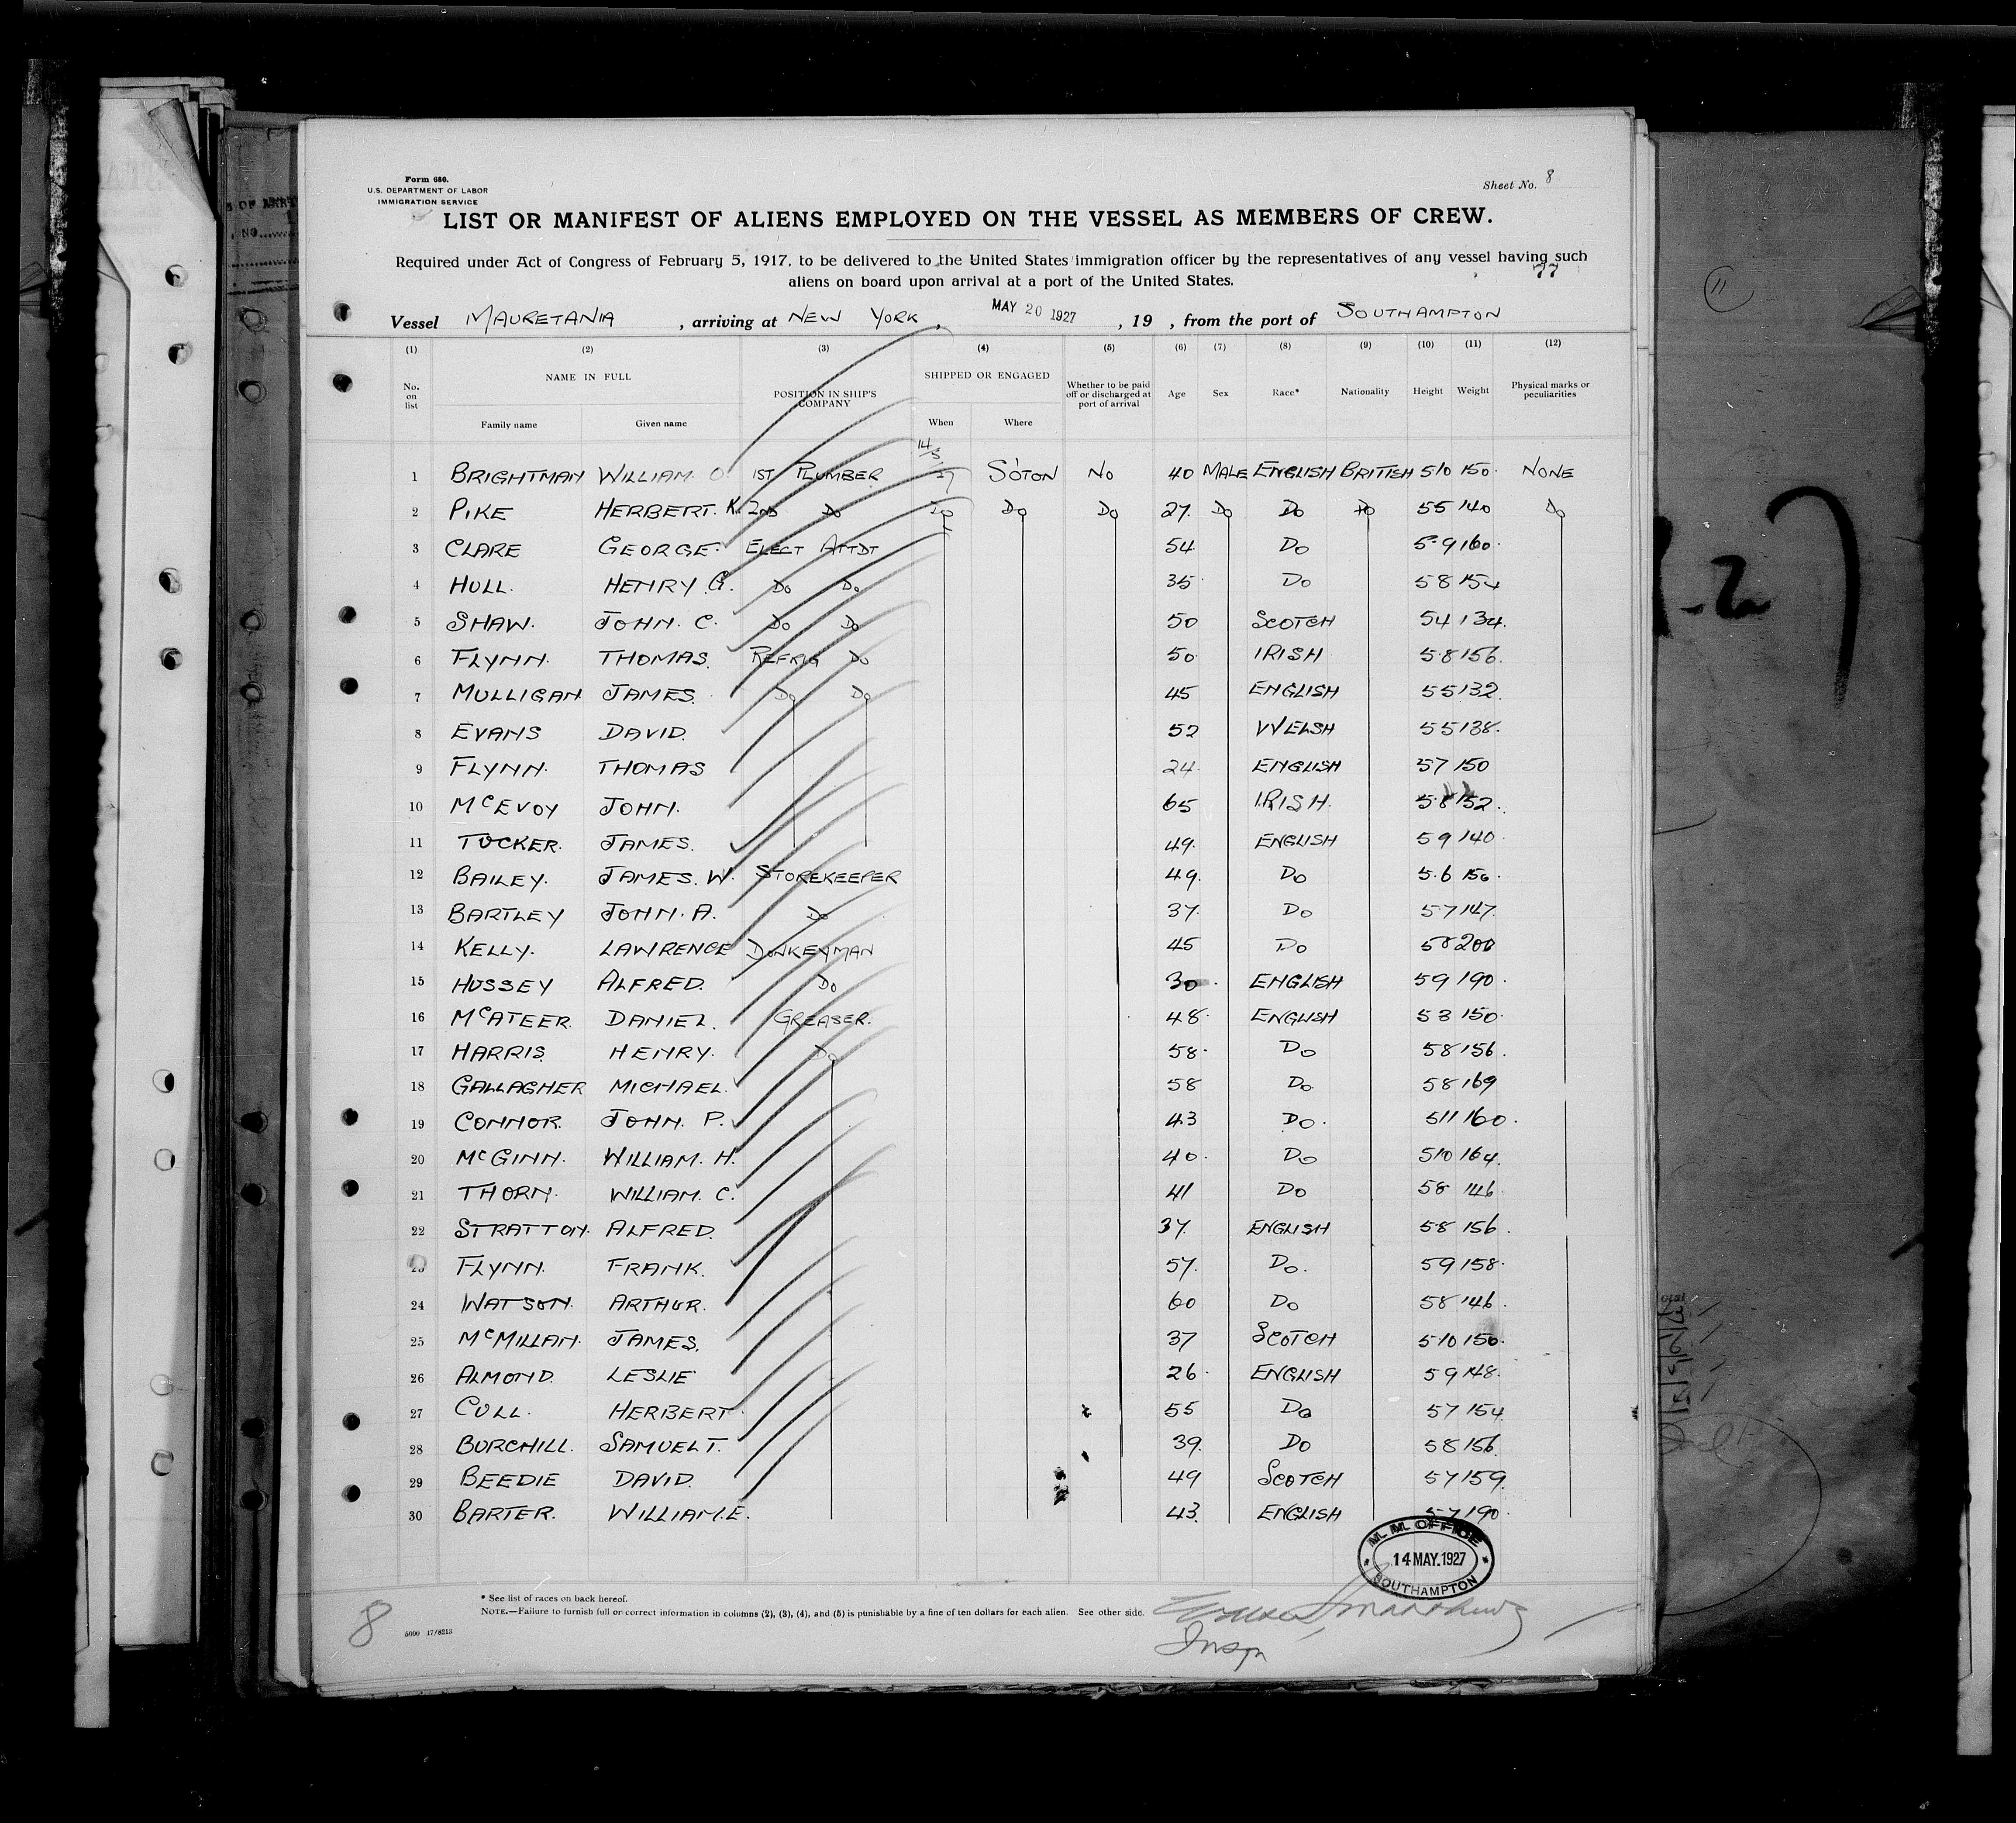 Form 680.
U.S. DEPARTMENT OF LABOR
IMMIGRATION SERVICE
Sheet No. 8
LIST OR MANIFEST OF ALIENS EMPLOYED ON THE VESSEL AS MEMBERS OF CREW.
Required under Act of Congress of February 5, 1917, to be delivered to the United States immigration officer by the representatives of any vessel having such
aliens on board upon arrival at a port of the United States.
77
Vessel MAURETANIA, arriving at NEW YORK, MAY 20 1927, 19 , from the port of SOUTHAMPTON
(1) (2) (3) (4) (5) (6) (7) (8) (9) (10) (11) (12)
No. on list NAME IN FULL POSITION IN SHIP'S COMPANY SHIPPED OR ENGAGED Whether to be paid off or discharged at port of arrival Age Sex Race* Nationality Height Weight Physical marks or peculiarities
Family name Given name When Where
1 BRIGHTMAN WILLIAM O 1ST PLUMBER 14/5/27 S'OTON NO 40 MALE ENGLISH BRITISH 510 150 NONE
2 PIKE HERBERT. K. 2ND DO DO DO DO 27 DO DO DO 55 140 DO
3 CLARE GEORGE. ELECT ATTDT 54 DO 5 9 160
4 HULL. HENRY G. DO DO 35 DO 58 154
5 SHAW. JOHN. C. DO DO 50 SCOTCH 54 134
6 FLYNN. THOMAS. REFRIG DO 50 IRISH 58 156
7 MULLIGAN JAMES. DO DO 45 ENGLISH 55 132
8 EVANS DAVID. 52 WELSH 55 138
9 FLYNN. THOMAS 24 ENGLISH 57 150
10 McEVOY JOHN. 65 IRISH. 58 152
11 TUCKER. JAMES. 49 ENGLISH 59 140
12 BAILEY. JAMES. W. STOREKEEPER 49 DO 5.6 150
13 BARTLEY JOHN. A. DO 37 DO 57 147
14 KELLY. LAWRENCE DONKEYMAN 45 DO 58 200
15 HUSSEY ALFRED. DO 30 ENGLISH 59 190
16 McATEER. DANIEL. GREASER. 48 ENGLISH 53 150
17 HARRIS. HENRY. DO 58 DO 58 156
18 GALLAGHER MICHAEL. 58 DO 58 169
19 CONNOR. JOHN. P. 43 DO 511 160
20 McGINN. WILLIAM. H. 40 DO 510 164
21 THORN. WILLIAM. C. 41 DO 58 146
22 STRATTON. ALFRED. 37 ENGLISH 58 156
23 FLYNN. FRANK. 57 DO 59 158
24 WATSON. ARTHUR. 60 DO 58 146
25 McMILLAN. JAMES. 37 SCOTCH 510 150
26 ALMOND. LESLIE 26 ENGLISH 59 148
27 CULL. HERBERT 55 DO 57 154
28 BURCHILL. SAMUEL T. 39 DO 58 156
29 BEEDIE DAVID. 49 SCOTCH 57 159
30 BARTER. WILLIAM. E. 43 ENGLISH 57 190
M. M. OFFICE
14 MAY. 1927
SOUTHAMPTON
* See list of races on back hereof.
NOTE.—Failure to furnish full or correct information in columns (2), (3), (4), and (5) is punishable by a fine of ten dollars for each alien. See other side.
5000 17/8213
8
Insp
11